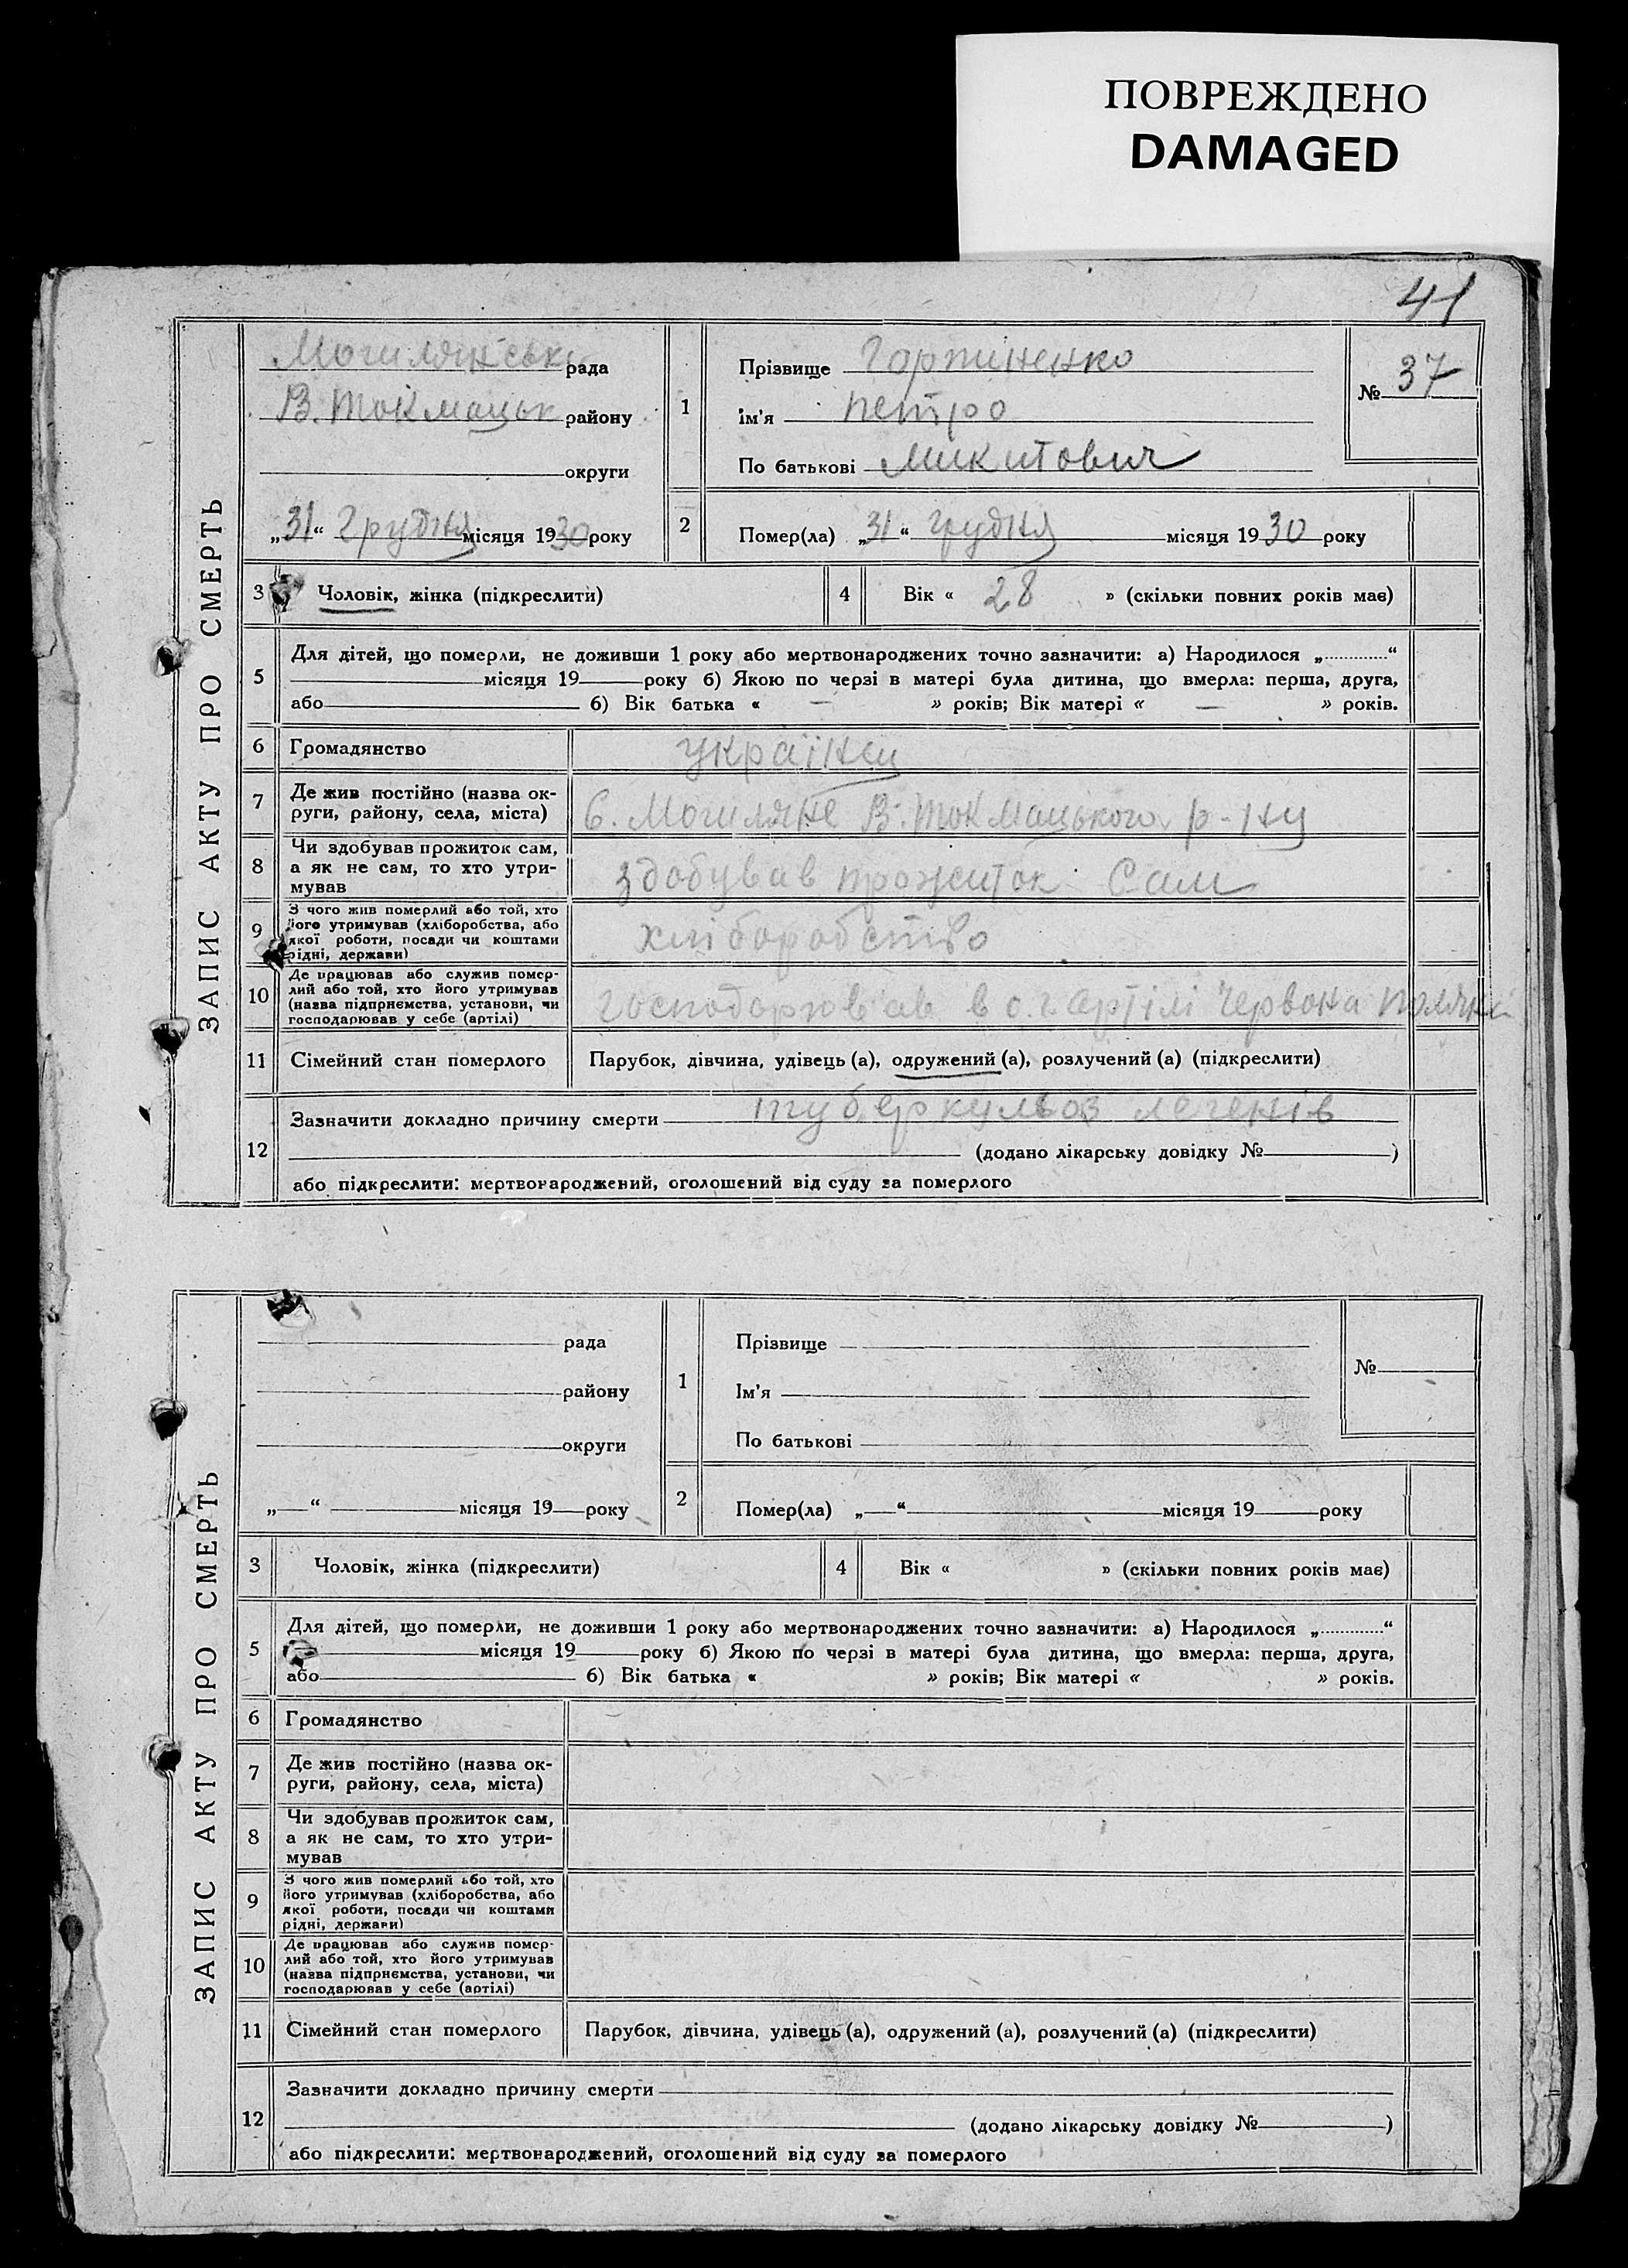 ПОВРЕЖДЕНО
DAMAGED
41
ЗАПИС АКТУ ПРО СМЕРТЬ
Могилянська рада
В. Токмацьк району
округи
„31“ Грудня місяця 1930 року
1
Прізвище Горпиненко
ім'я Петро
По батькові Микитович
№ 37
2 Помер(ла) „31“ Грудня місяця 1930 року
3 Чоловік, жінка (підкреслити)
4 Вік « 28 » (скільки повних років має)
5
Для дітей, що померли, не доживши 1 року або мертвонароджених точно зазначити: а) Народилося „............“
місяця 19 року б) Якою по черзі в матері була дитина, що вмерла: перша, друга,
або б) Вік батька « — » років; Вік матері « — » років.
6 Громадянство українец
7 Де жив постійно (назва ок-
руги, району, села, міста) С. Могиляне В. Токмацького р-ну
8
Чи здобував прожиток сам,
а як не сам, то хто утри-
мував
здобував прожиток Сам
9
З чого жив померлий або той, хто
його утримував (хліборобства, або
якої роботи, посади чи коштами
рідні, держави)
хліборобство
10
Де працював або служив помер-
лий або той, хто його утримував
(назва підприємства, установи, чи
господарював у себе (артілі)
господорював в с. г. артілі Червона поляна
11 Сімейний стан померлого Парубок, дівчина, удівець (а), одружений (а), розлучений (а) (підкреслити)
12
Зазначити докладно причину смерти туберкульоз легенів
(додано лікарську довідку № )
або підкреслити: мертвонароджений, оголошений від суду за померлого
ЗАПИС АКТУ ПРО СМЕРТЬ
рада
району
округи
„ “ місяця 19 року
1
Прізвище
Ім'я
По батькові
№
2 Помер(ла) „ “ місяця 19 року
3 Чоловік, жінка (підкреслити)
4 Вік « » (скільки повних років має)
5
Для дітей, що померли, не доживши 1 року або мертвонароджених точно зазначити: а) Народилося „............“
місяця 19 року б) Якою по черзі в матері була дитина, що вмерла: перша, друга,
або б) Вік батька « » років; Вік матері « » років.
6 Громадянство
7 Де жив постійно (назва ок-
руги, району, села, міста)
8
Чи здобував прожиток сам,
а як не сам, то хто утри-
мував
9
З чого жив померлий або той, хто
його утримував (хліборобства, або
якої роботи, посади чи коштами
рідні, держави)
10
Де працював або служив помер-
лий або той, хто його утримував
(назва підприємства, установи, чи
господарював у себе (артілі)
11 Сімейний стан померлого Парубок, дівчина, удівець (а), одружений (а), розлучений (а) (підкреслити)
12
Зазначити докладно причину смерти
(додано лікарську довідку № )
або підкреслити: мертвонароджений, оголошений від суду за померлого